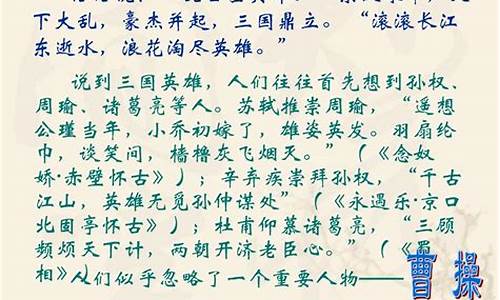 下大乱，豪杰并起，三国鼎立。“滚滚长江
东逝水，浪花淘尽英雄。”
说到三国英雄，人们往往首先想到孙权、
周瑜、诸葛亮等人。苏轼推崇周瑜，“遥想
公瑾当年，小乔初嫁了，雄姿英发。羽扇纶
巾，谈笑间，樯橹灰飞烟灭。”（《念奴
娇·赤壁怀古》）；辛弃疾崇拜孙权，“千古
江山，英雄无觅孙仲谋处”（《永遇乐·京口
北固亭怀古》）；杜甫仰慕诸葛亮，“三顾
频烦天下计，两朝开济老臣心。”（《蜀
相》）
人们似乎忽略了一个重要人物——
曹操